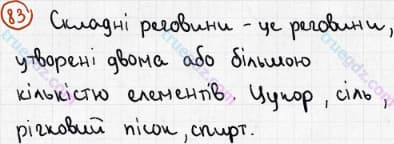 83 Складні речовини - це речовини,
утворені двома або більшою
кількістю елементів. Цукор, сіль,
річковий пісок, спирт.